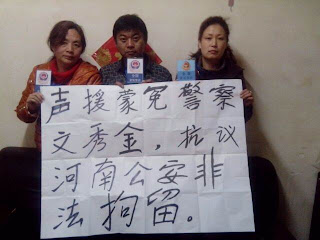 声援蒙冤警察
文秀金，抗议
河南公安非
法拘留。